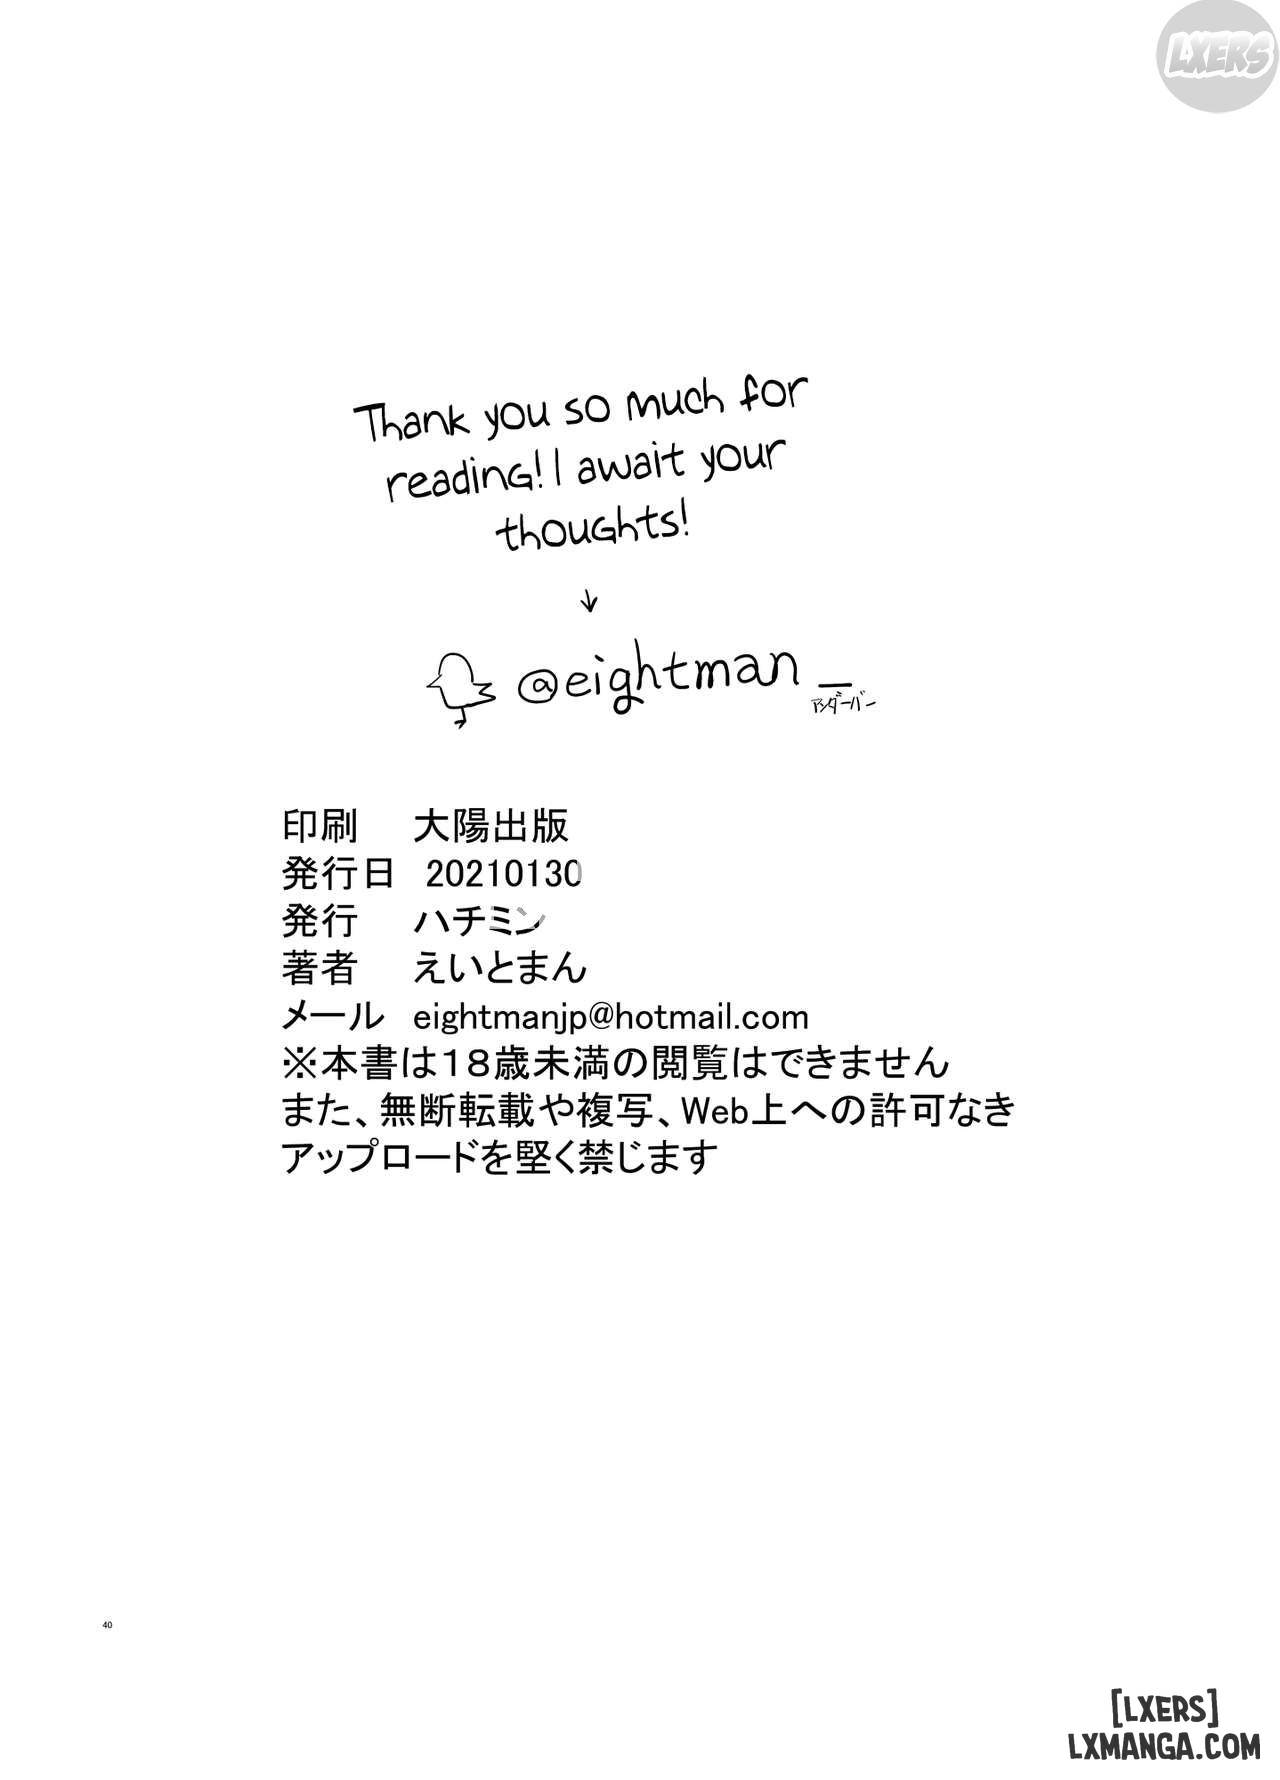 LXERS
Thank you so much for
reading! I await your
thoughts!
↓
@eightman_
アンダーバー
印刷 大陽出版
発行日 20210130
発行 ハチミン
著者 えいとまん
メール eightmanjp@hotmail.com
※本書は１８歳未満の閲覧はできません
また、無断転載や複写、Web上への許可なき
アップロードを堅く禁じます
40
[LXERS]
LXMANGA.COM